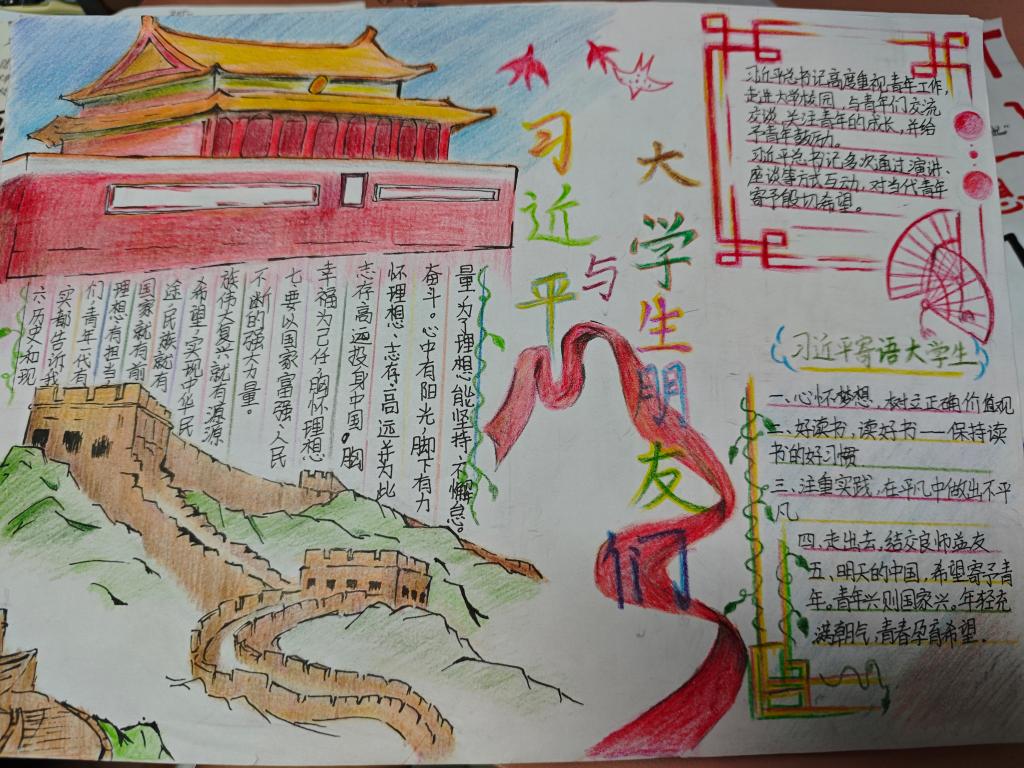 习近平
与
大学生朋友们
习近平总书记高度重视青年工作,
走进大学校园,与青年们交流
交谈,关注青年的成长,并给
予青年鼓励。
习近平总书记多次通过演讲、
座谈等方式与互动,对当代青年
寄予殷切希望。
习近平寄语大学生
一、心怀梦想,树立正确价值观
二、好读书、读好书——保持读
书的好习惯
三、注重实践,在平凡中做出不平
凡
四、走出去,结交良师益友
五、明天的中国,希望寄予青
年。青年兴则国家兴。年轻充
满朝气,青春孕育希望.
六、历史和现
实都告诉我
们,青年一代有
理想,有担当
国家就有前
途,民族就有
希望,实现中华民
族伟大复兴就有源源
不断的强大力量。
七要以国家富强、人民
幸福为己任,胸怀理想、
志存高远投身中国。胸
怀理想、志存高远并为此
奋斗。心中有阳光,脚下有力
量,为了理想能坚持、不懈怠。